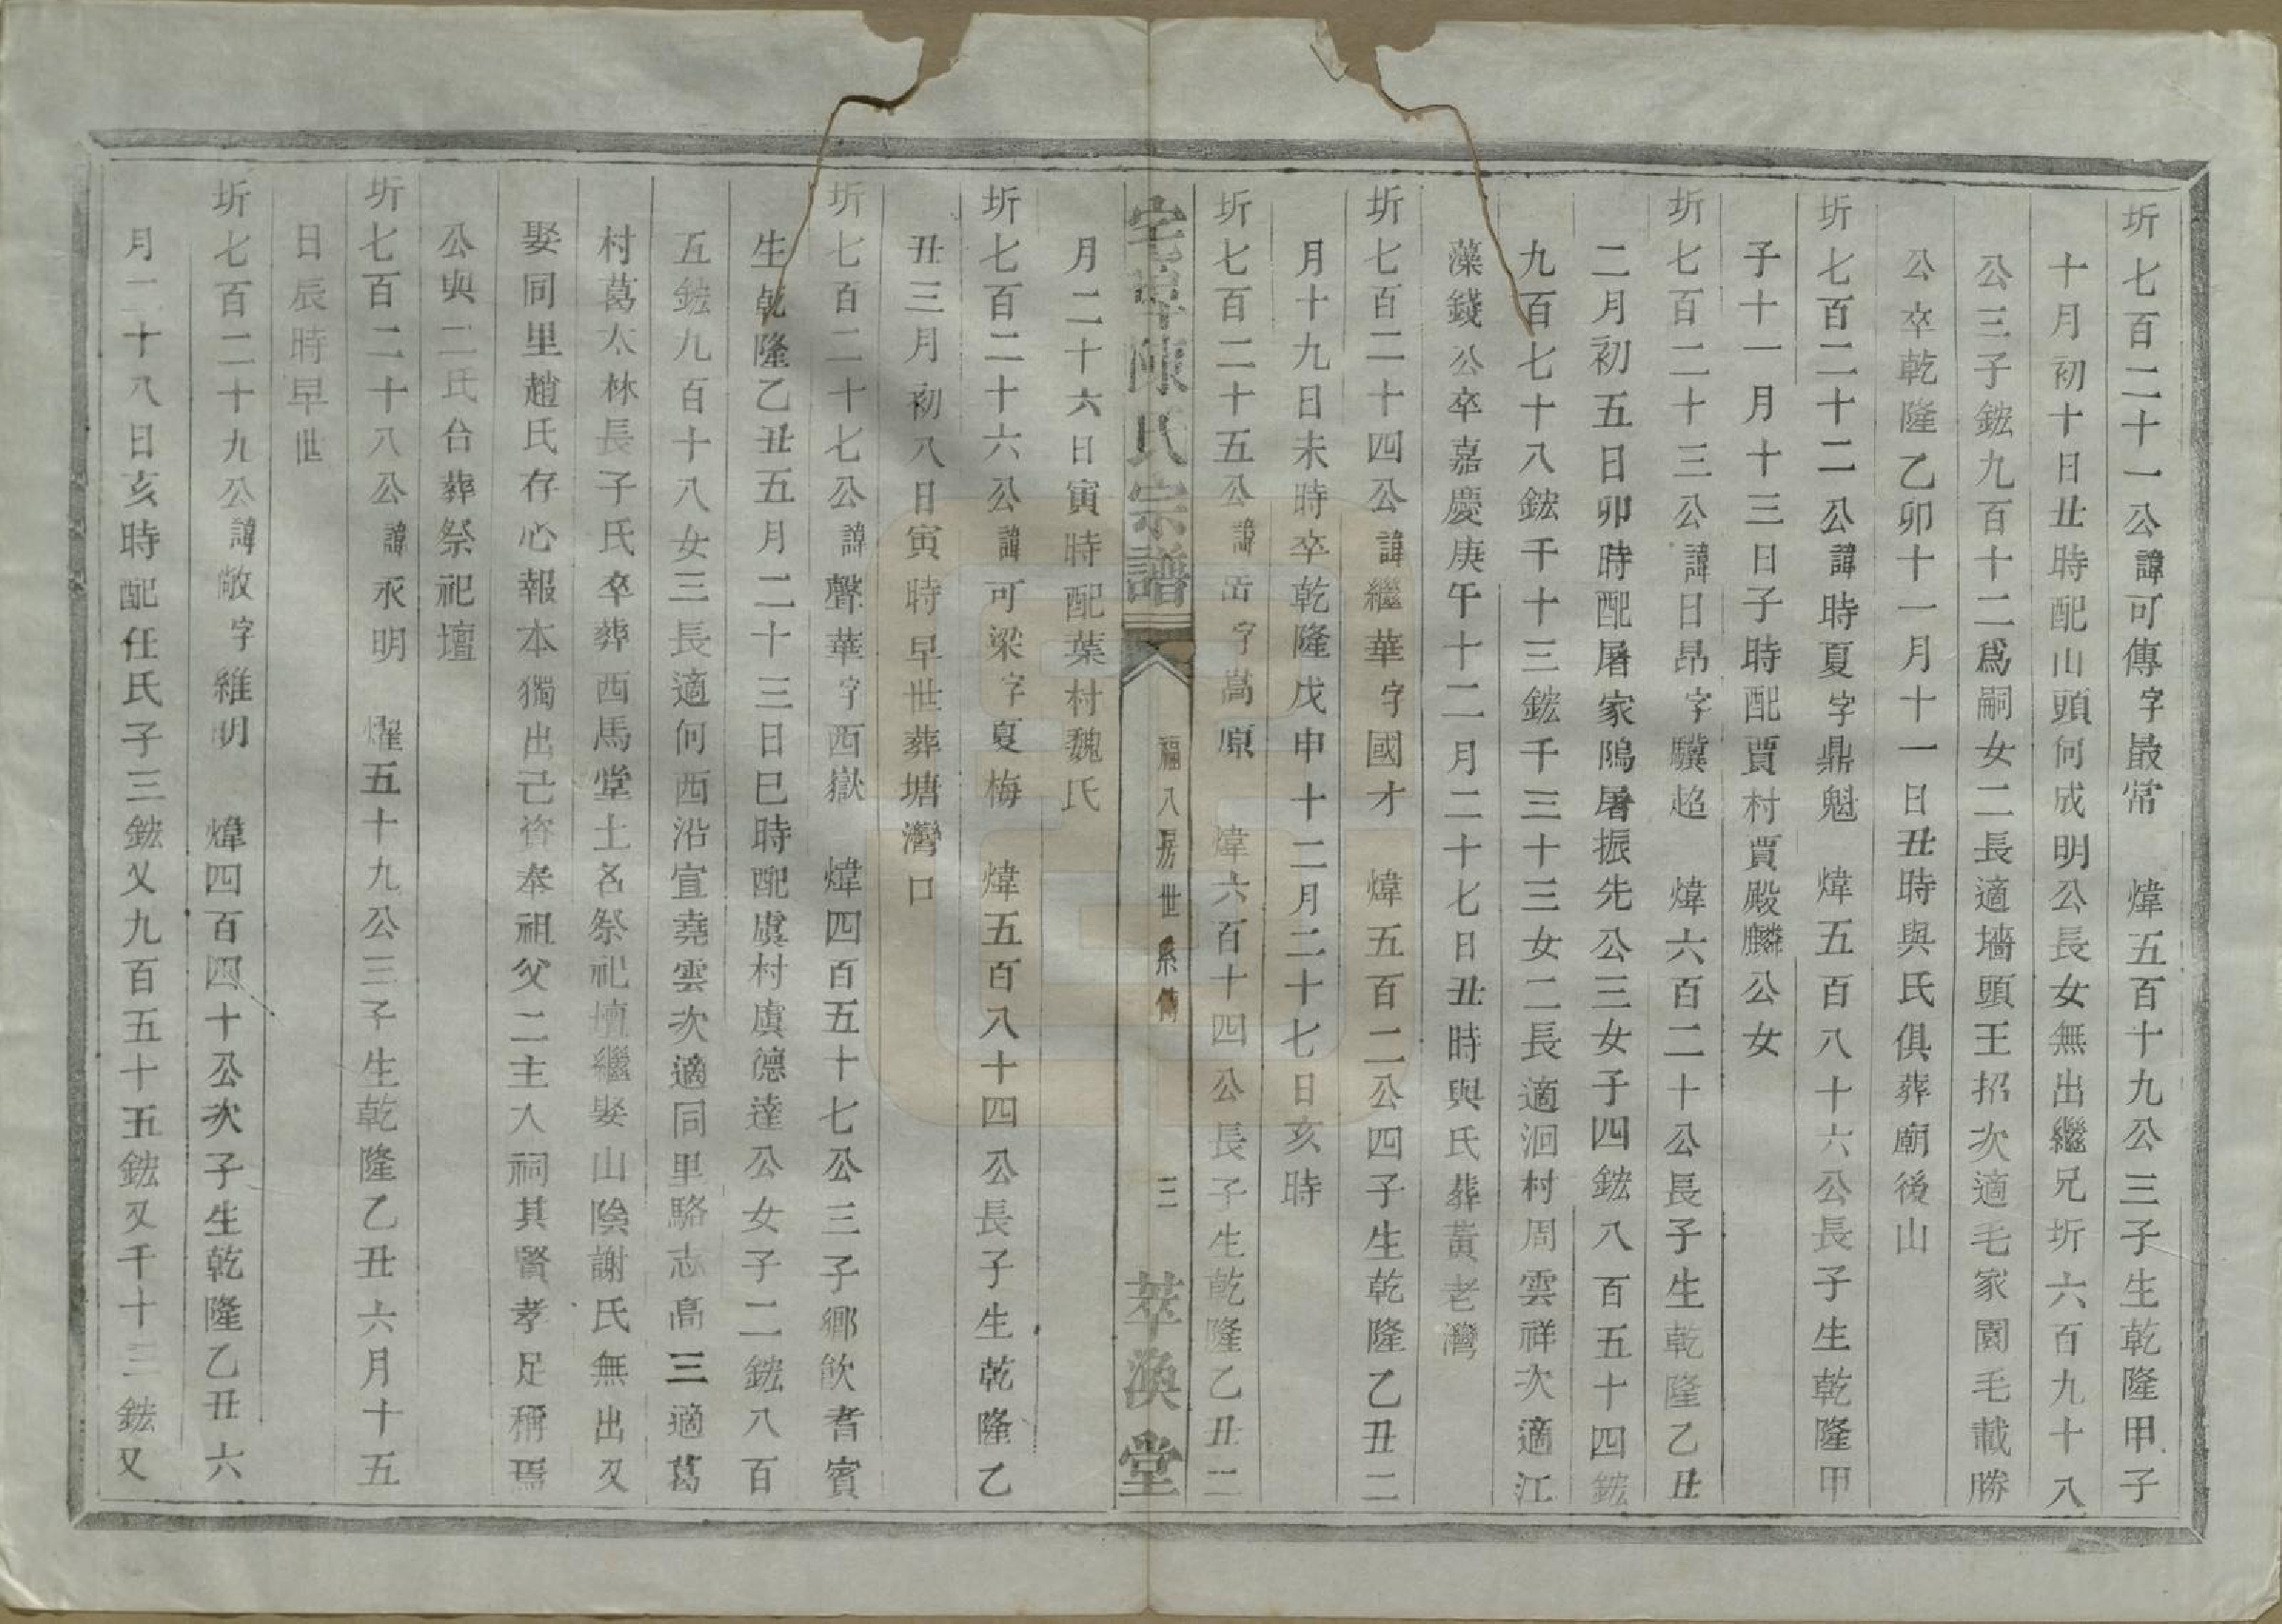 圻七百二十一公諱可傳字最常　煒五百十九公三子生乾隆甲子
十月初十日丑時配山頭何成明公長女無出繼兄圻六百九十八
公三子鋐九百十二爲嗣女二長適墻頭王招次適毛家園毛載勝
公卒乾隆乙卯十一月十一日丑時與氏俱葬廟後山
圻七百二十二公諱時夏字鼎魁　煒五百八十六公長子生乾隆甲
子十一月十三日子時配賈村賈殿麟公女
圻七百二十三公諱日昂字驥超　煒六百二十公長子生乾隆乙丑
二月初五日卯時配屠家隝屠振先公三女子四鋐八百五十四鋐
九百七十八鋐千十三鋐千三十三女二長適洄村周雲祥次適江
藻錢公卒嘉慶庚午十二月二十七日丑時與氏葬黃老灣
圻七百二十四公諱繼華字國才　煒五百二公四子生乾隆乙丑二
月十九日未時卒乾隆戊申十二月二十七日亥時
圻七百二十五公諱岳字嵩原　煒六百十四公長子生乾隆乙丑二
宅埠陳氏宗譜　福八房世系傳　三　萃渙堂
月二十六日寅時配葉村魏氏
圻七百二十六公諱可梁字夏梅　煒五百八十四公長子生乾隆乙
丑三月初八日寅時早世葬塘灣口
圻七百二十七公諱聲華字西嶽　煒四百五十七公三子鄉飲耆賓
生乾隆乙丑五月二十三日巳時配虞村虞德達公女子二鋐八百
五鋐九百十八女三長適何西沿宣堯雲次適同里駱志高三適葛
村葛太林長子氏卒葬西馬堂土名祭祀壇繼娶山陰謝氏無出又
娶同里趙氏存心報本獨出己咨奉祖父二主入祠其賢孝足稱焉
公與二氏合葬祭祀壇
圻七百二十八公諱永明　燿五十九公三子生乾隆乙丑六月十五
日辰時早世
圻七百二十九公諱敞字維明　煒四百四十公次子生乾隆乙丑六
月二十八日亥時配任氏子三鋐又九百五十五鋐又千十三鋐又